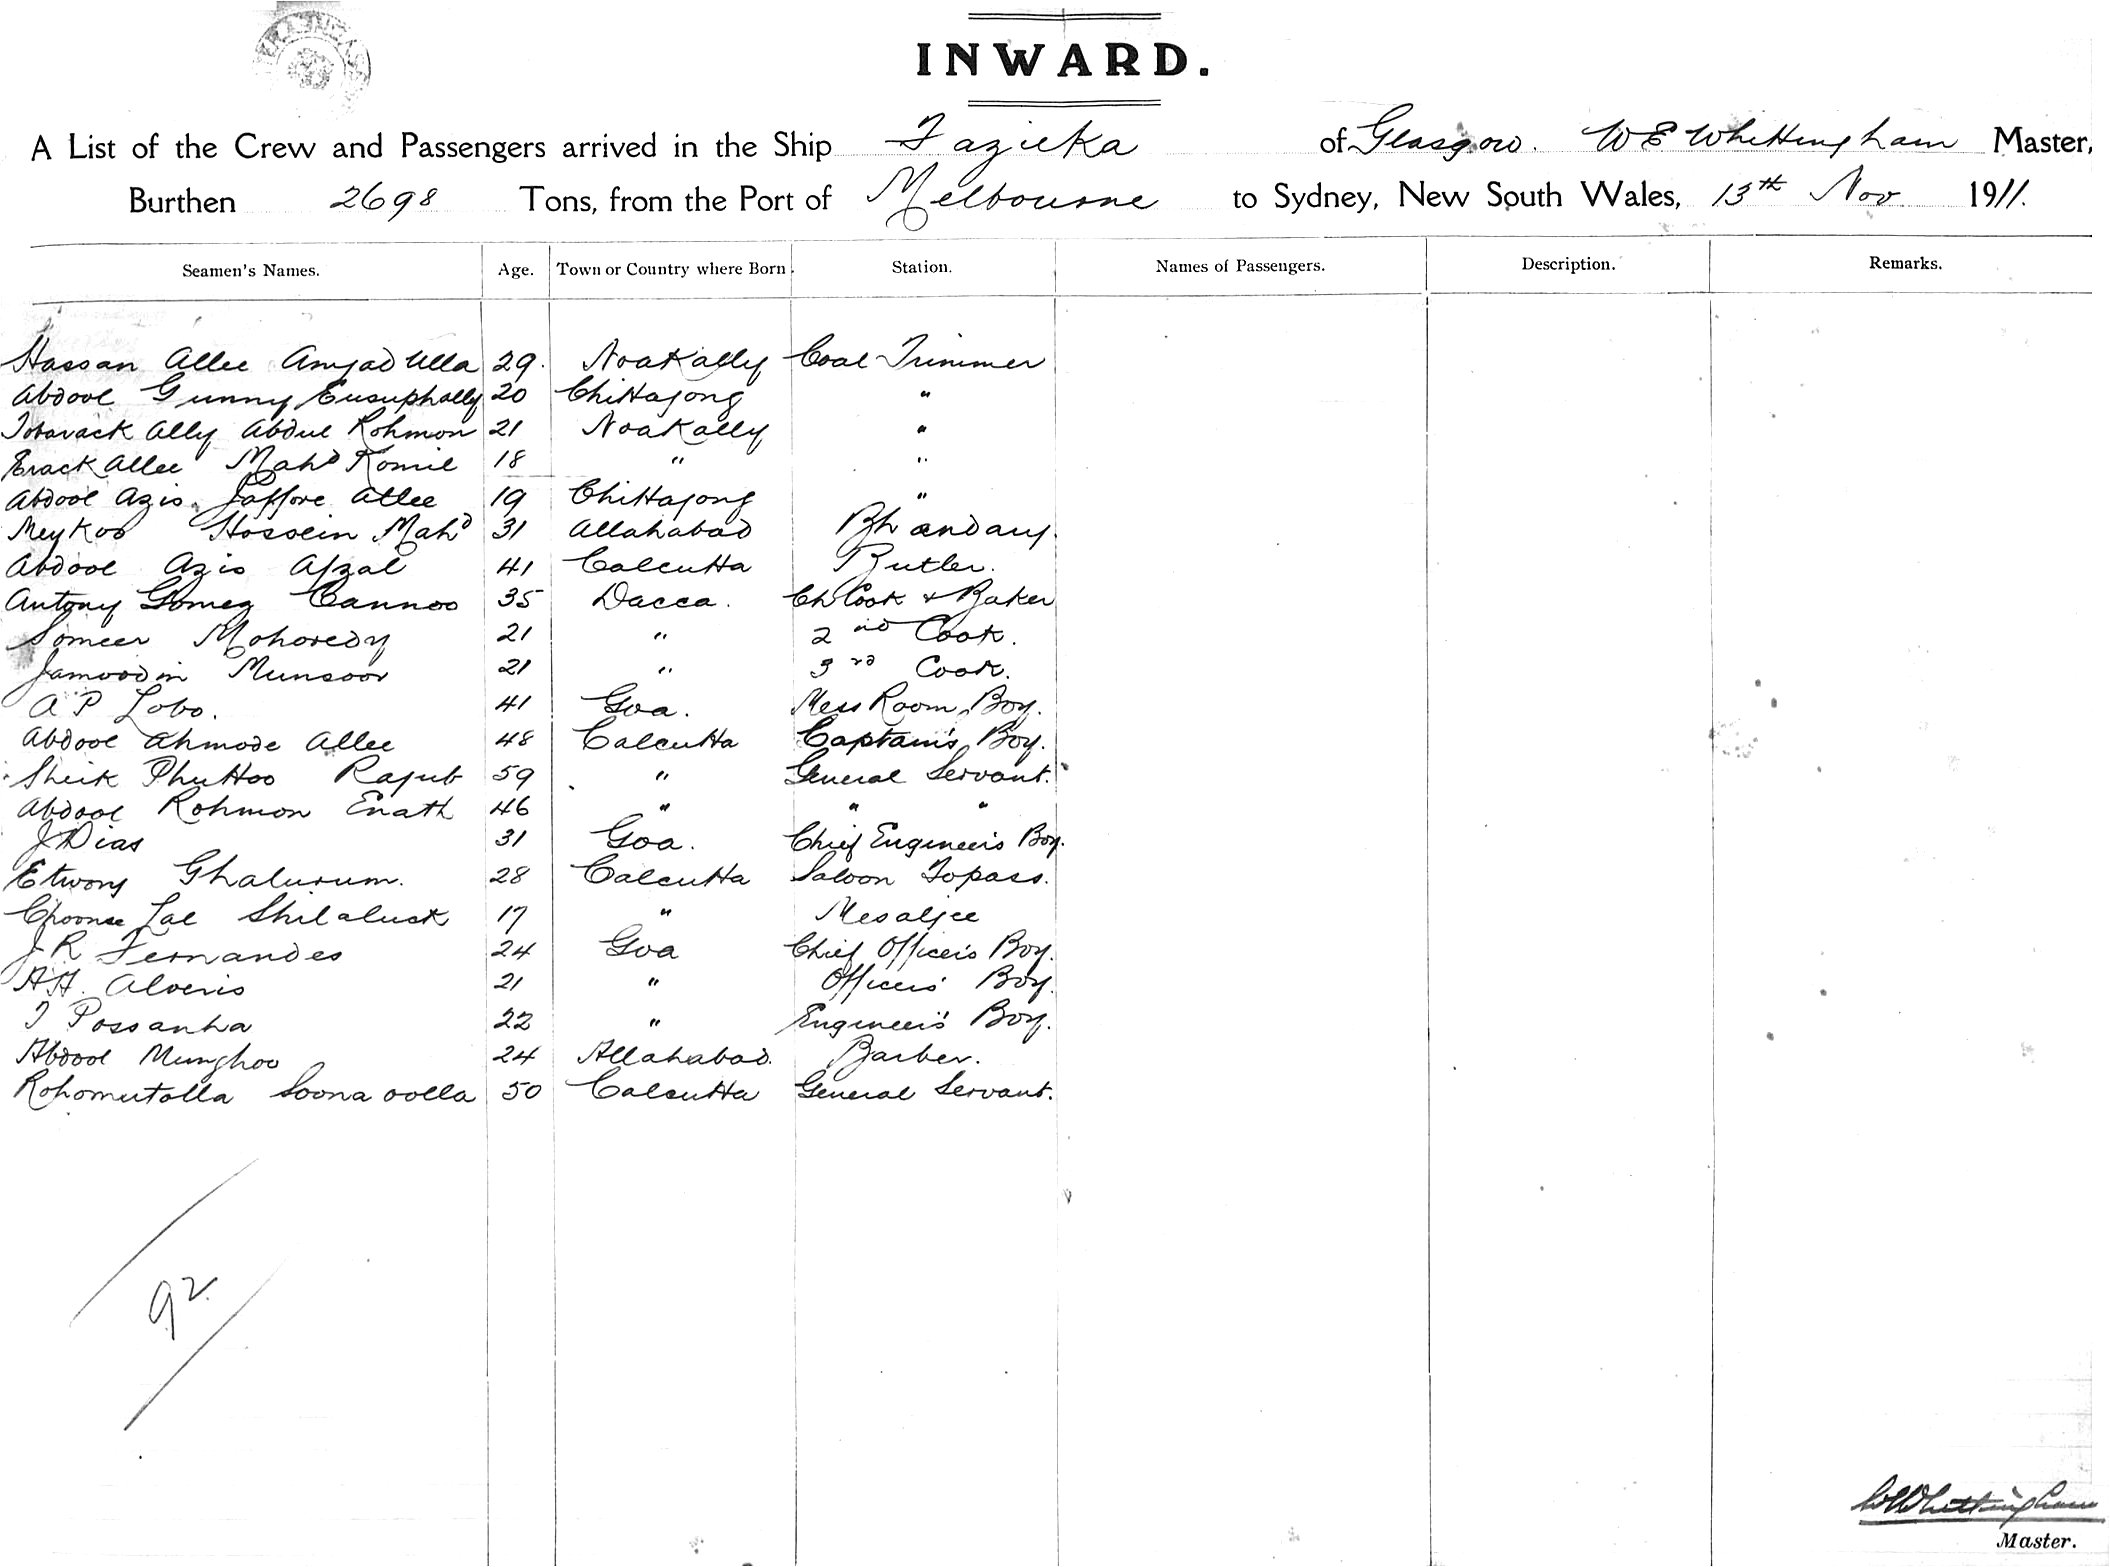 INWARD.
A List of the Crew and Passengers arrived in the Ship Fazilka of Glasgow. W E Whittingham Master,
Burthen 2698 Tons, from the Port of Melbourne to Sydney, New South Wales, 13th Nov 1911.
Seamen's Names. Age. Town or Country where Born. Station. Names of Passengers. Description. Remarks.
Hassan Allee Amjad Ulla 29. Noakally Coal Trimmer
Abdool Gunny Eusuphally 20 Chittagong "
Tobarack Ally Abdul Rohmon 21 Noakally "
Erack Allee Mahd Komil 18 " "
Abdool Azis Jaffore Allee 19 Chittagong "
Meykoo Hossein Mahd 31 Allahabad Bhandary.
Abdool Azis Afzal 41 Calcutta Butler.
Antony Gomez Cannoo 35 Dacca. Ch Cook & Baker
Someer Mohoredy 21 " 2nd Cook.
Jamoodin Munsoor 21 " 3rd Cook.
A P Lobo. 41 Goa. Mess Room Boy.
Abdool Ahmode Allee 48 Calcutta Captain's Boy.
Sheik Phuttoo Rajub 59 " General Servant.
Abdool Rohmon Enath 46 " " "
J Dias 31 Goa. Chief Engineer's Boy.
Etwony Ghalurum. 28 Calcutta Saloon Topass.
Choonee Lal Shilaluck 17 " Mesaljee
J R Fernandes 24 Goa Chief Officer's Boy.
A H. Alveris 21 " Officers' Boy.
I Possanha 22 " Engineers' Boy.
Abdool Munghoo 24 Allahabad. Barber.
Rohomutolla Soona oolla 50 Calcutta General Servant.
92
W E Whittingham
Master.